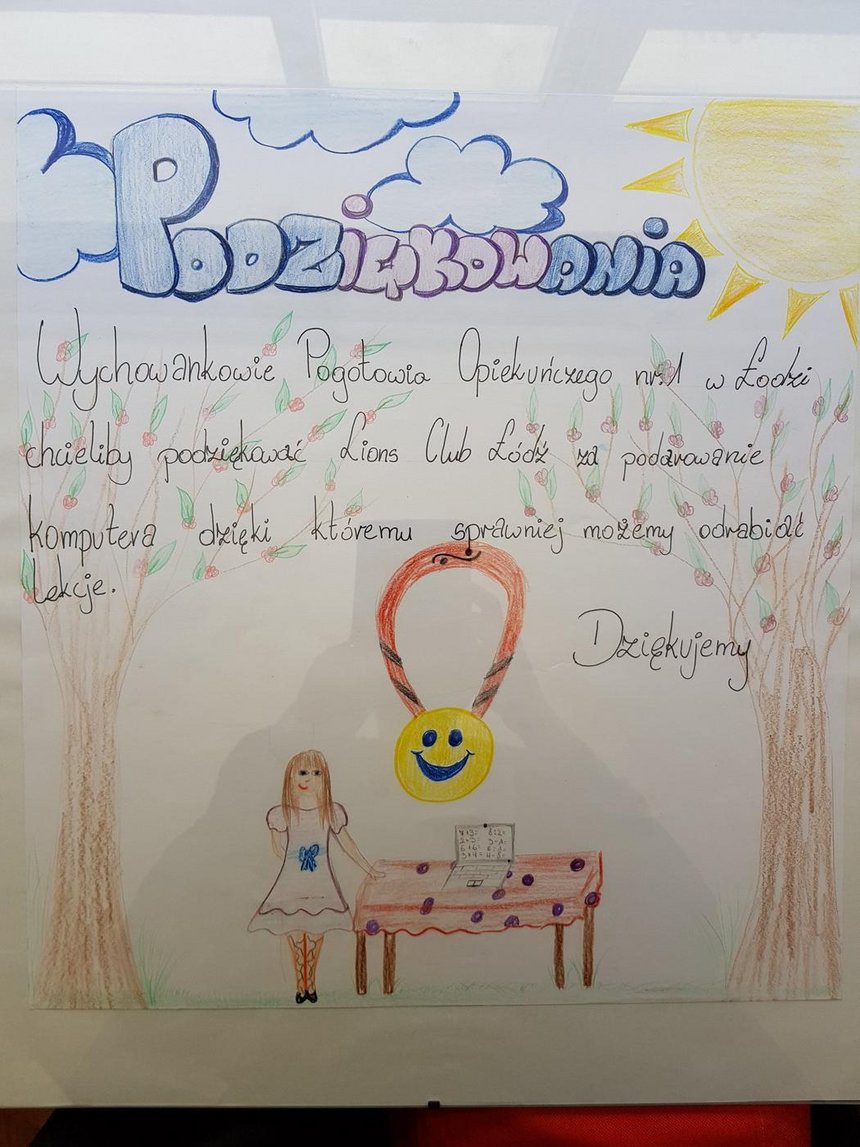 Podziękowania
Wychowankowie Pogotowia Opiekuńczego nr.1 w Łodzi
chcieliby podziękować Lions Club Łódź za podarowanie
komputera dzięki któremu sprawniej możemy odrabiać
lekcje.
Dziękujemy